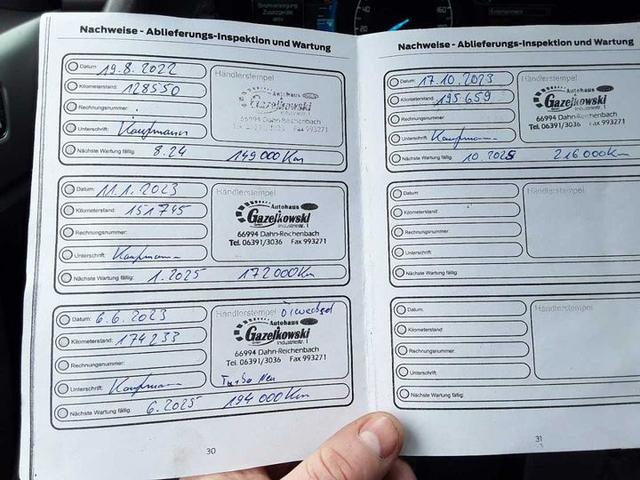 Nachweise - Ablieferungs-Inspektion und Wartung
Datum: 19.8.2022
Händlerstempel
Kilometerstand: 128550
Autohaus
Gazelkowski
Rechnungsnummer:
66994 Dahn-Reichenbach
Unterschrift: Kaufmann
Nächste Wartung fällig: 8.24 149000 Km
Datum: 11.1.2023
Händlerstempel
Kilometerstand: 151745
Autohaus
Gazelkowski
Industriestr. 1
Rechnungsnummer:
66994 Dahn-Reichenbach
Unterschrift: Kaufmann
Tel. 06391/3036 Fax 993271
Nächste Wartung fällig: 1.2025 172000Km
Datum: 6.6.2023
Händlerstempel Ölwechsel
Kilometerstand: 174233
Autohaus
Gazelkowski
Industriestr. 1
Rechnungsnummer:
66994 Dahn-Reichenbach
Tel. 06391/3036 Fax 993271
Unterschrift: Kaufmann
Turbo Neu
Nächste Wartung fällig: 6.2025 194000Km
30
Nachweise - Ablieferungs-Inspektion und Wartung
Datum: 17.10.2023
Händlerstempel
Kilometerstand: 195659
Autohaus
Gazelkowski
Industriestr. 1
Rechnungsnummer:
66994 Dahn-Reichenbach
Tel. 06391/3036 Fax 993271
Unterschrift: Kaufmann
Nächste Wartung fällig: 10 2025 216000Km
Datum:
Händlerstempel
Kilometerstand:
Rechnungsnummer:
Unterschrift:
Nächste Wartung fällig:
Datum:
Händlerstempel
Kilometerstand:
Rechnungsnummer:
Unterschrift:
Nächste Wartung fällig:
31